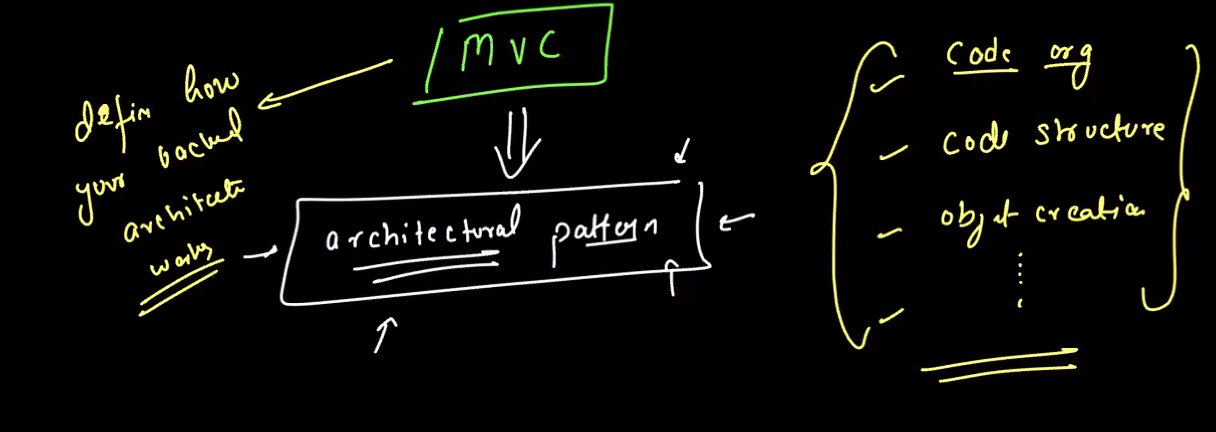 MVC
defin how
your backed
architecte
works
architectural pattern
code org
code structure
objet creation